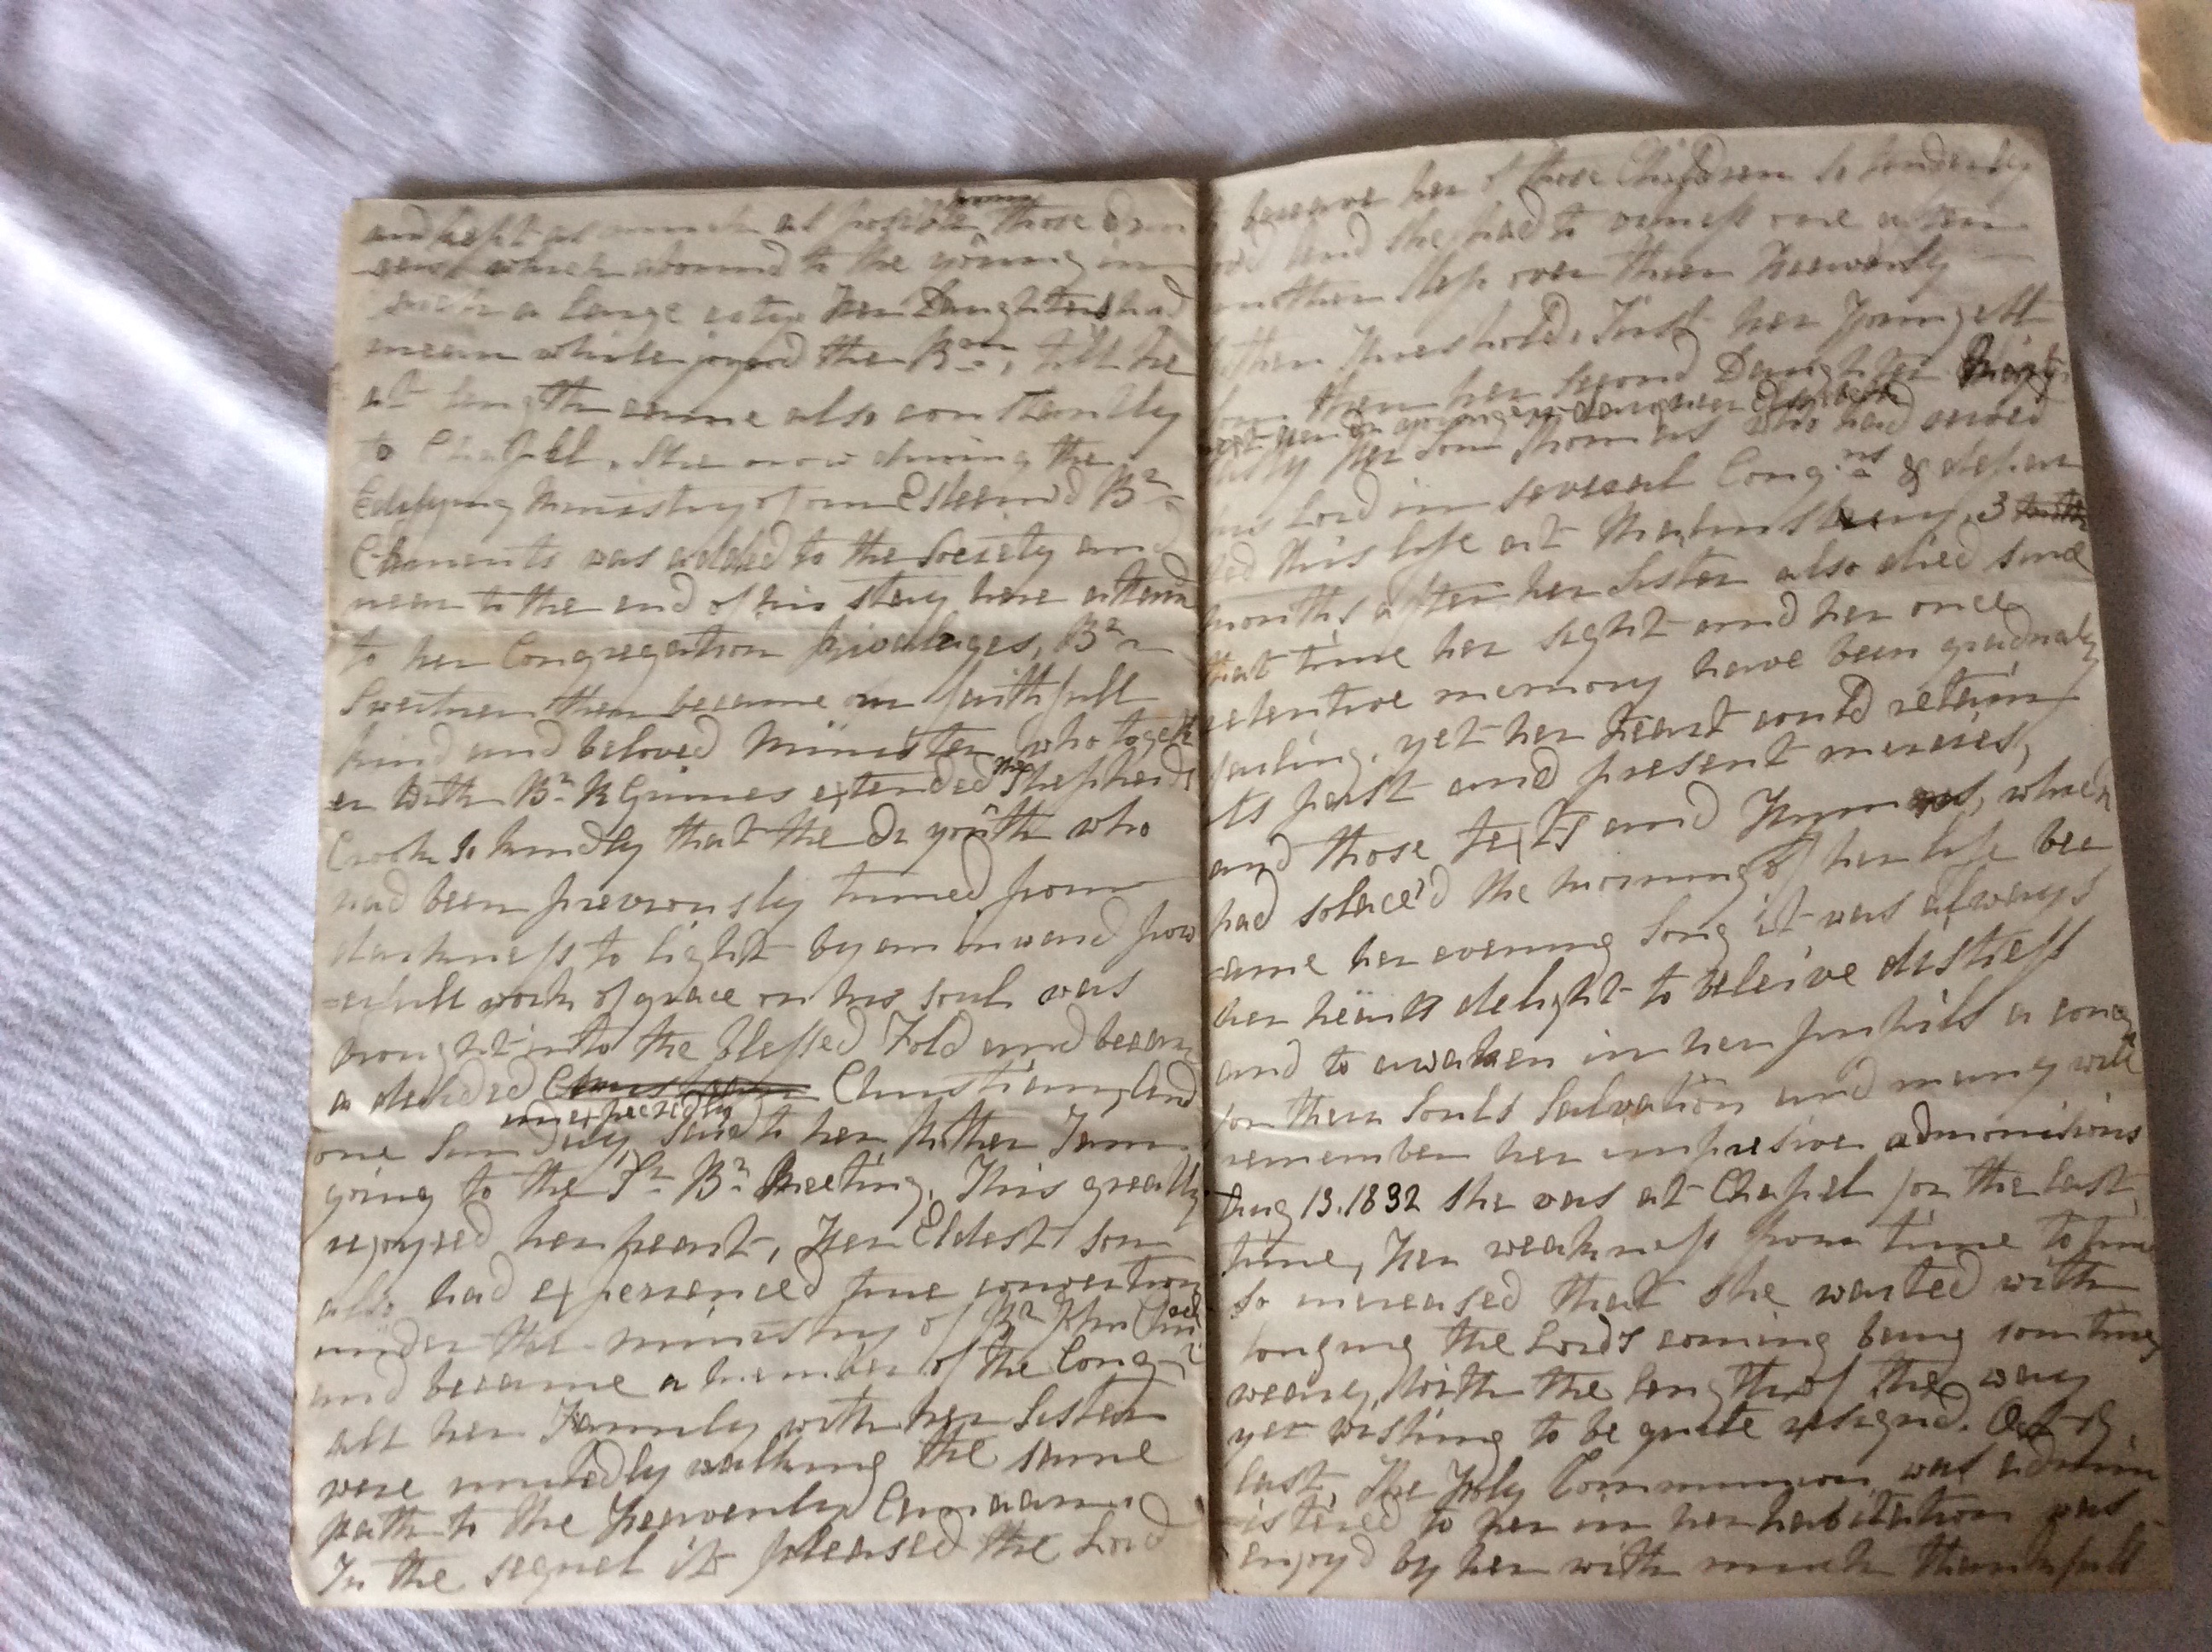 and kept as much as posible from those dan
-gers which abound to the young in
such a large city. Her Daughters had
mean while joyned the B:on:, till he
at length came also constantly
to Chapell. She now during the
Edifying Ministry of our Esteem'd Br:
Clements was added to the Society and
near to the end of his stay here attain'd
to her Congregation privaleges, Br:
then became our faithfull
kind and beloved Minister, who togeth
er with Br: R Grimes extended the Shepherds
Crook so kindly that the Dr youth who
had been previously turned from
darkness to light by an inward pow
-erfull work of grace on his soul was
brought into the blessed Fold and became
a decided Christian, and
one Sunday unexpectedly said to her Mother I am
going to the Sr Br: Meeting. This greatly
rejoyced her heart, Her Eldest son
also had experienced true convertion
under the ministry of Br John
and became a member of the Cong:n
all her Family with her Sister
were unitedly walking the same
path to the heavenly Canaan.
In the sequel it pleased the Lord
bereave her of those Children so tenderly
and she had to witness one after
another step over their Heavenly
Fathers threshold, First her Youngest
Son then her second Daughter
next year her younger daughter Elizabeth
lastly her Son Thomas who had served
his Lord in several Cong:ns & depar
ted this life at Malmsbury, 3
months after her Sister also died since
that time her sight and her once
retentive memory have been gradualy
failing, yet her heart could retain
its past and present mercies,
and those texts and Hymns, which
had solace'd the morning of her life bec
-ame her evening Song it was always
her hearts delight to releive distress
and to awaken in her pupils a concern
for their Souls Salvation and many will
remember her impresive admonisions
Aug 13.1832 she was at Chapel for the last
time, Her weakness from time to time
so increased that she waited with
longing the Lords coming being somtimes
weary, with the length of the way
yet wishing to be quite resign'd. Oct
last, the Holy Communion was admin
-istered to her in her habitation was
enjoy'd by her with much thankfull